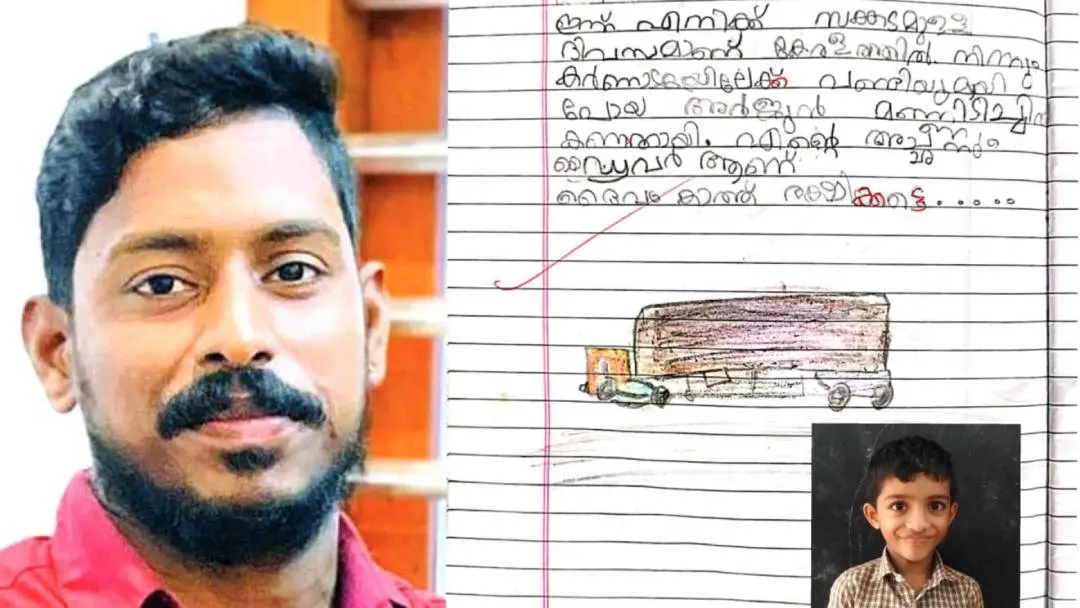 ഇന്ന് എനിക്ക് സങ്കടമുള്ള
ദിവസമാണ് കേരളത്തിൽ നിന്നും
കർണാടകയിലേക്ക് വണ്ടിയുമായി
പോയ അർജുൻ മണ്ണിടിച്ചി
കണാതായി. എൻ്റെ അച്ഛനും
ഡ്രൈവർ ആണ്
ദൈവം കാത്ത് രക്ഷിക്കട്ടെ......